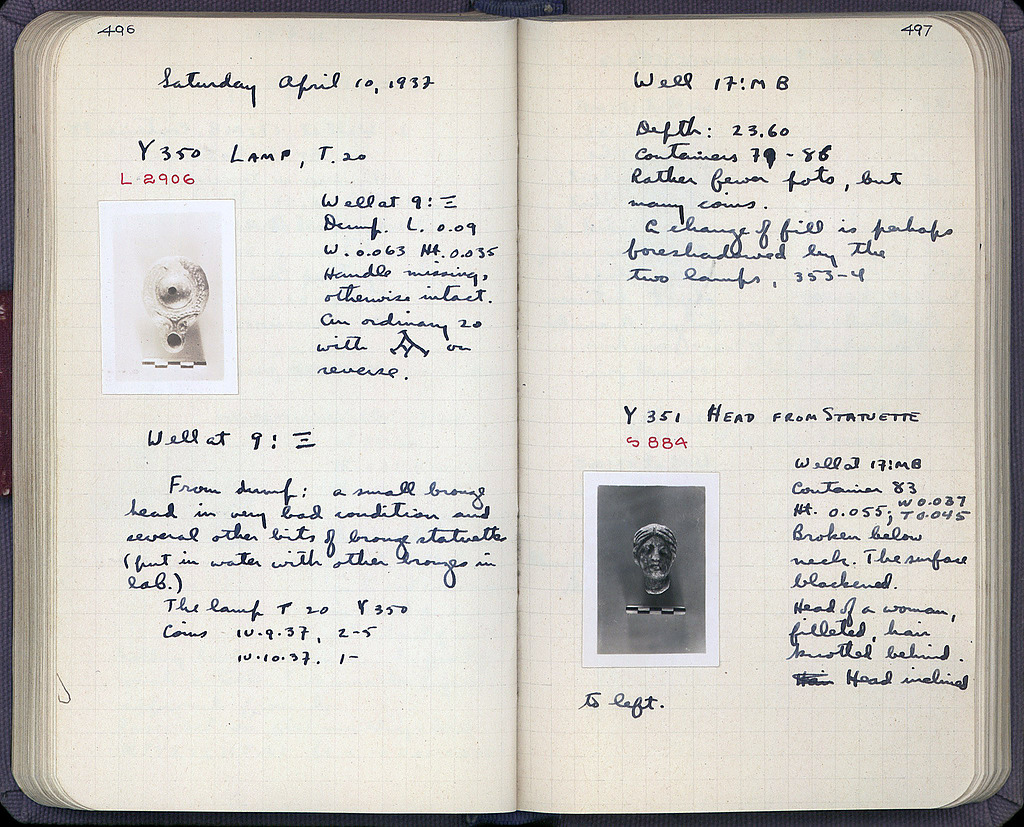 496
Saturday April 10, 1937
Y 350 LAMP, T. 20
L 2906
Well at 9 : Ξ
Dump. L. 0.09
W. 0.063 Ht. 0.035
Handle missing,
otherwise intact.
An ordinary 20
with on
reverse.
Well at 9 : Ξ
From dump: a small bronze
head in very bad condition and
several other bits of bronze statuette
(put in water with other bronzes in
lab.)
The lamp T 20 Y 350
Coins IV.9.37, 2-5
IV.10.37. 1-
497
Well 17:MB
Depth: 23.60
Containers 79 - 86
Rather fewer pots, but
many coins.
A change of fill is perhaps
foreshadowed by the
two lamps, 353-4
Y 351 HEAD FROM STATUETTE
S 884
Well at 17:MB
Container 83
Ht. 0.055; W 0.037
T 0.045
Broken below
neck. The surface
blackened.
Head of a woman,
filleted, hair
knotted behind.
Head inclined
to left.